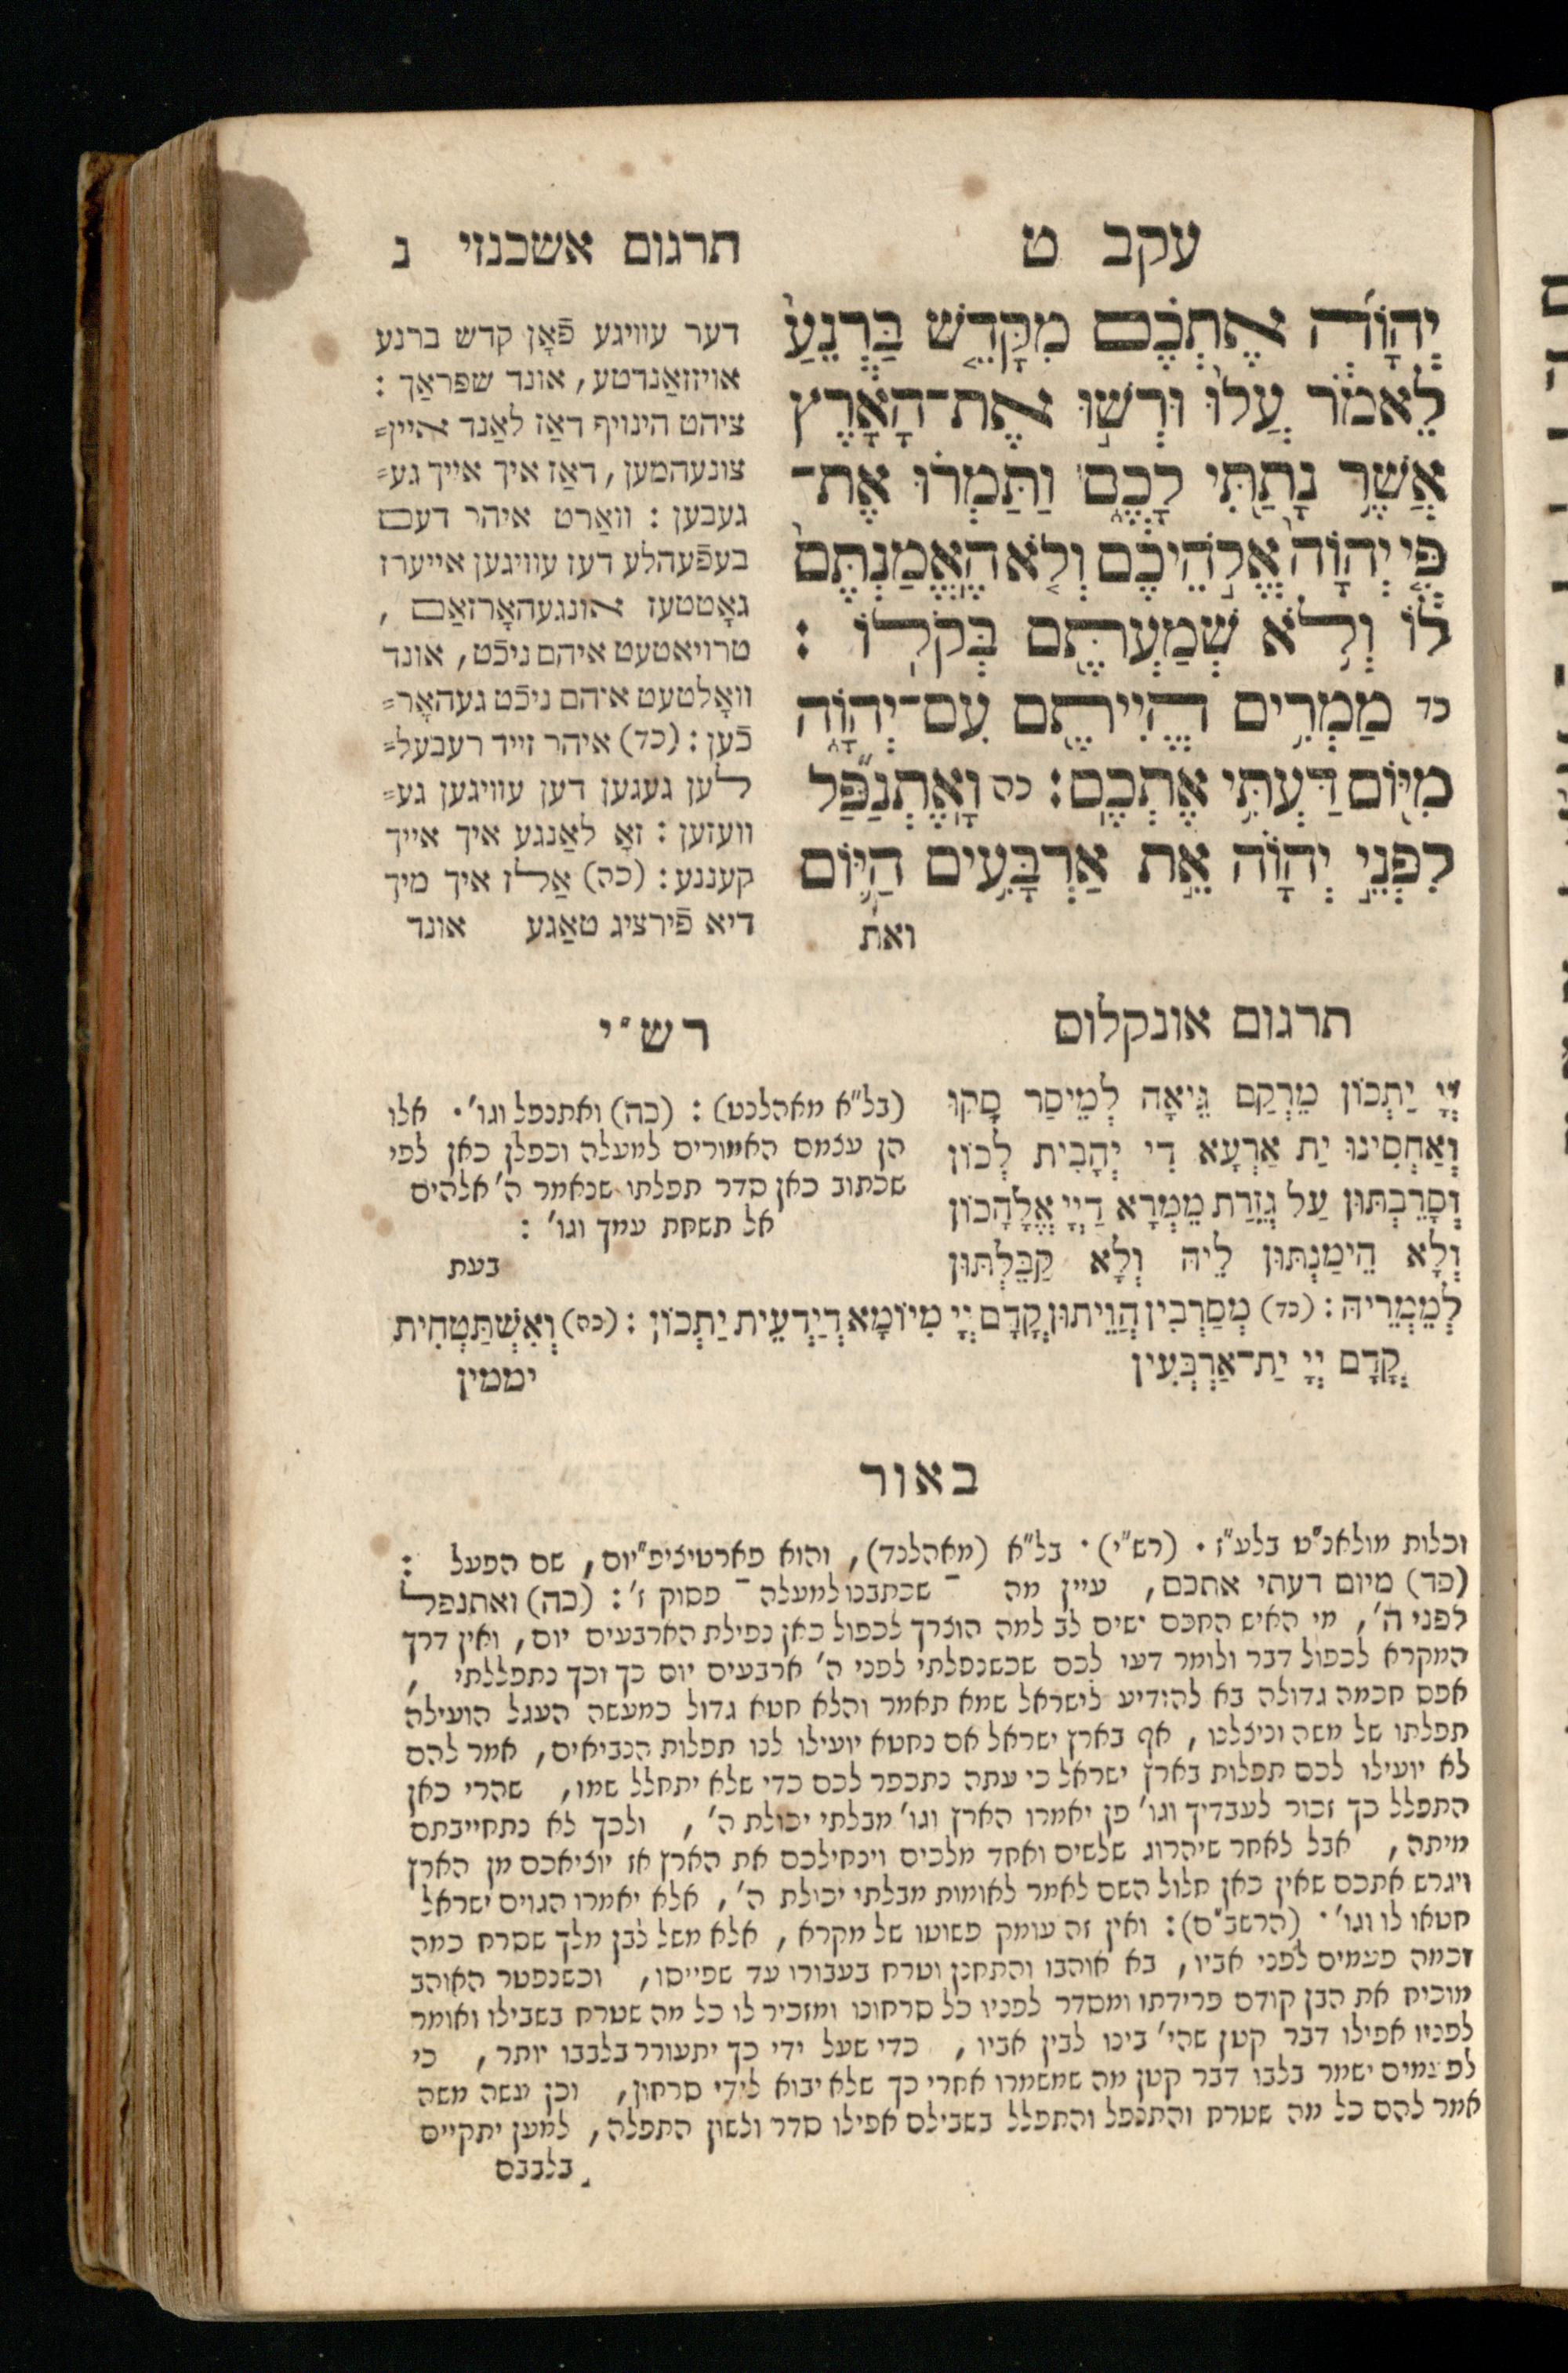 עקב ט
יְהֹוָ֜ה אֶתְכֶ֗ם מִקָּדֵ֤שׁ בַּרְנֵ֙עַ֙
לֵאמֹ֔ר עֲלוּ֙ וּרְשׁ֣וּ אֶת־הָאָ֔רֶץ
אֲשֶׁ֥ר נָתַ֖תִּי לָכֶ֑ם וַתַּמְר֗וּ אֶת־
פִּ֤י יְהֹוָה֙ אֱלֹ֣הֵיכֶ֔ם וְלֹ֤א הֶאֱמַנְתֶּם֙
ל֔וֹ וְלֹ֥א שְׁמַעְתֶּ֖ם בְּקֹלֽוֹ :
כד מַמְרִ֥ים הֱיִיתֶ֖ם עִם־יְהֹוָ֑ה
מִיּ֖וֹם דַּעְתִּ֥י אֶתְכֶֽם : כה וָֽאֶתְנַפַּ֞ל
לִפְנֵ֣י יְהֹוָ֗ה אֵ֣ת אַרְבָּעִ֥ים הַיּ֛וֹם
ואת
תרגום אשכנזי נ
דער עוויגע פֿאָן קדש ברנע
אויזזאַנדטע, אונד שפראַך :
ציהט הינויף דאַז לאַנד איין=
צונעהמען, דאַז איך אייך גע=
געבען : וואַרט איהר דעם
בעפֿעהלע דעז עוויגען אייערז
גאָטטעז אונגעהאָרזאַם ,
טרויאטעט איהם ניכֿט, אונד
וואָלטעט איהם ניכֿט געהאָר=
כֿען : (כד) איהר זייד רעבעל=
לען געגען דען עוויגען גע=
וועזען : זאָ לאַנגע איך אייך
קעננע : (כה) אַלז איך מיך
דיא פֿירציג טאַגע אונד
תרגום אונקלוס
יְיָ יַתְכוֹן מֵרְקַם גֵּיאָה לְמֵיסַר סְקוּ
וְאַחְסִינוּ יַת אַרְעָא דִי יְהָבִית לְכוֹן
וְסָרֵבְתּוּן עַל גְּזֵרַת מֵמְרָא דַיְיָ אֱלָהָכוֹן
וְלָא הֵימַנְתּוּן לֵיהּ וְלָא קַבֵּלְתּוּן
לְמֵמְרֵיהּ : (כד) מְסַרְבִין הֲוֵיתוּן קֳדָם יְיָ מִיּוֹמָא דְיַדְעֵית יַתְכוֹן : (כה) וְאִשְׁתַּטְחִית
קֳדָם יְיָ יַת־אַרְבְּעִין
יממין
רש״י
(בל"א מאהלכט) : (כה) ואתנפל וגו'. אלו
הן עצמם האמורים למעלה וכפלן כאן לפי
שכתוב כאן סדר תפלתו שנאמר ה' אלהים
אל תשחת עמך וגו' :
בעת
באור
וכלות מולאנ"ט בלע"ז . (רש"י) . בל"א (מאהלנד), והוא פארטיציפ"יום, שם הפעל :
(כד) מיום דעתי אתכם, עיין מה שכתבנו למעלה פסוק ז' : (כה) ואתנפל
לפני ה', מי האיש החכם ישים לב למה הוצרך לכפול כאן נפילת הארבעים יום, ואין דרך
המקרא לכפול דבר ולומר דעו לכם שכשנפלתי לפני ה' ארבעים יום כך וכך נתפללתי ,
אפס חכמה גדולה בא להודיע לישראל שמא תאמר והלא חטא גדול כמעשה העגל הועילה
תפלתו של משה וניצלנו, אף בארץ ישראל אם נחטא יועילו לנו תפלות הנביאים, אמר להם
לא יועילו לכם תפלות בארץ ישראל כי עתה נתכפר לכם כדי שלא יתחלל שמו, שהרי כאן
התפלל כך זכור לעבדיך וגו' פן יאמרו הארץ וגו' מבלתי יכולת ה', ולכך לא נתחייבתם
מיתה, אבל לאחר שיהרוג שלשים ואחד מלכים וינחילכם את הארץ אז יוציאכם מן הארץ
ויגרש אתכם שאין כאן חלול השם לאמר לאומות מבלתי יכולת ה', אלא יאמרו הגוים ישראל
חטאו לו וגו' . (הרשב"ם) : ואין זה עומק פשוטו של מקרא, אלא משל לבן מלך שסרח כמה
וכמה פעמים לפני אביו, בא אוהבו והתחנן וטרח בעבורו עד שפייסו, וכשנפטר האוהב
מוכיח את הבן קודם פרידתו ומסדר לפניו כל סרחונו ומזכיר לו כל מה שטרח בשבילו ואומר
לפניו אפילו דבר קטן שהי' בינו לבין אביו, כדי שעל ידי כך יתעורר בלבבו יותר, כי
לפעמים ישמר בלבו דבר קטן מה שמשמרו אחרי כך שלא יבוא לידי סרחון, וכן עשה משה
אמר להם כל מה שטרח והתנפל והתפלל בשבילם אפילו סדר ולשון התפלה, למען יתקיים
בלבבם